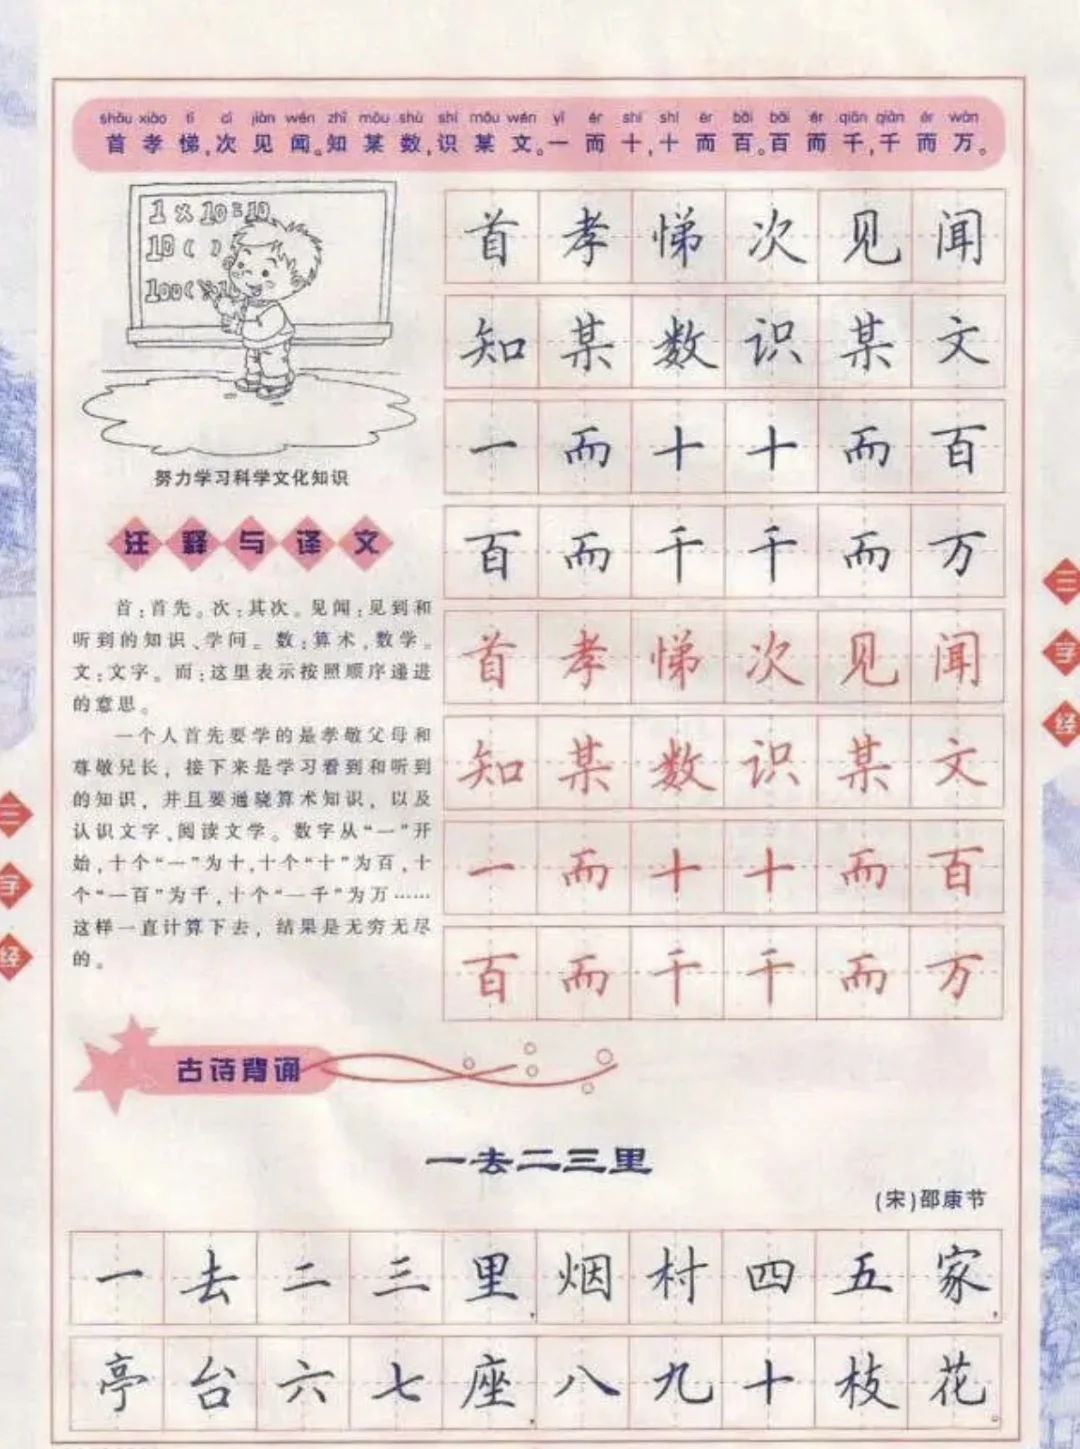 shǒu xiào tì cì jiàn wén zhī mǒu shù shí mǒu wén yī ér shí shí ér bǎi bǎi ér qiān qiān ér wàn
首孝悌,次见闻。知某数,识某文。一而十,十而百。百而千,千而万。
1×10=10
10( )
努力学习科学文化知识
注释与译文
首:首先。次:其次。见闻:见到和
听到的知识、学问。数:算术,数学。
文:文字。而:这里表示按照顺序递进
的意思。
一个人首先要学的是孝敬父母和
尊敬兄长，接下来是学习看到和听到
的知识，并且要通晓算术知识，以及
认识文字、阅读文学。数字从“一”开
始,十个“一”为十,十个“十”为百,十
个“一百”为千,十个“一千”为万……
这样一直计算下去，结果是无穷无尽
的。
首孝悌次见闻
知某数识某文
一而十十而百
百而千千而万
首孝悌次见闻
知某数识某文
一而十十而百
百而千千而万
古诗背诵
一去二三里
(宋)邵康节
一去二三里,烟村四五家,
亭台六七座,八九十枝花。
三字经
三字经